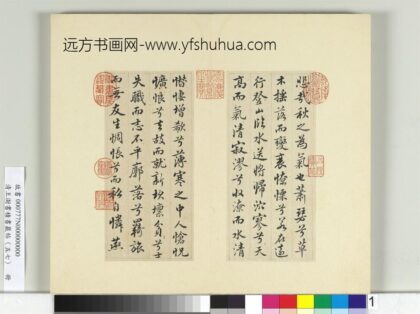 远方书画网-www.yfshuhua.com
悲哉秋之為氣也蕭瑟兮草
木搖落而變衰憭慄兮若在遠
行登山臨水送將歸泬寥兮天
高而氣清寂漻兮收潦而水清
憯悽增欷兮薄寒之中人愴怳
懭悢兮去故而就新坎壈貧兮士
失職而志不平廓落兮羈旅
而無友生惆悵兮而私自憐燕
清王澍書積書巖帖(五七) 冊
1